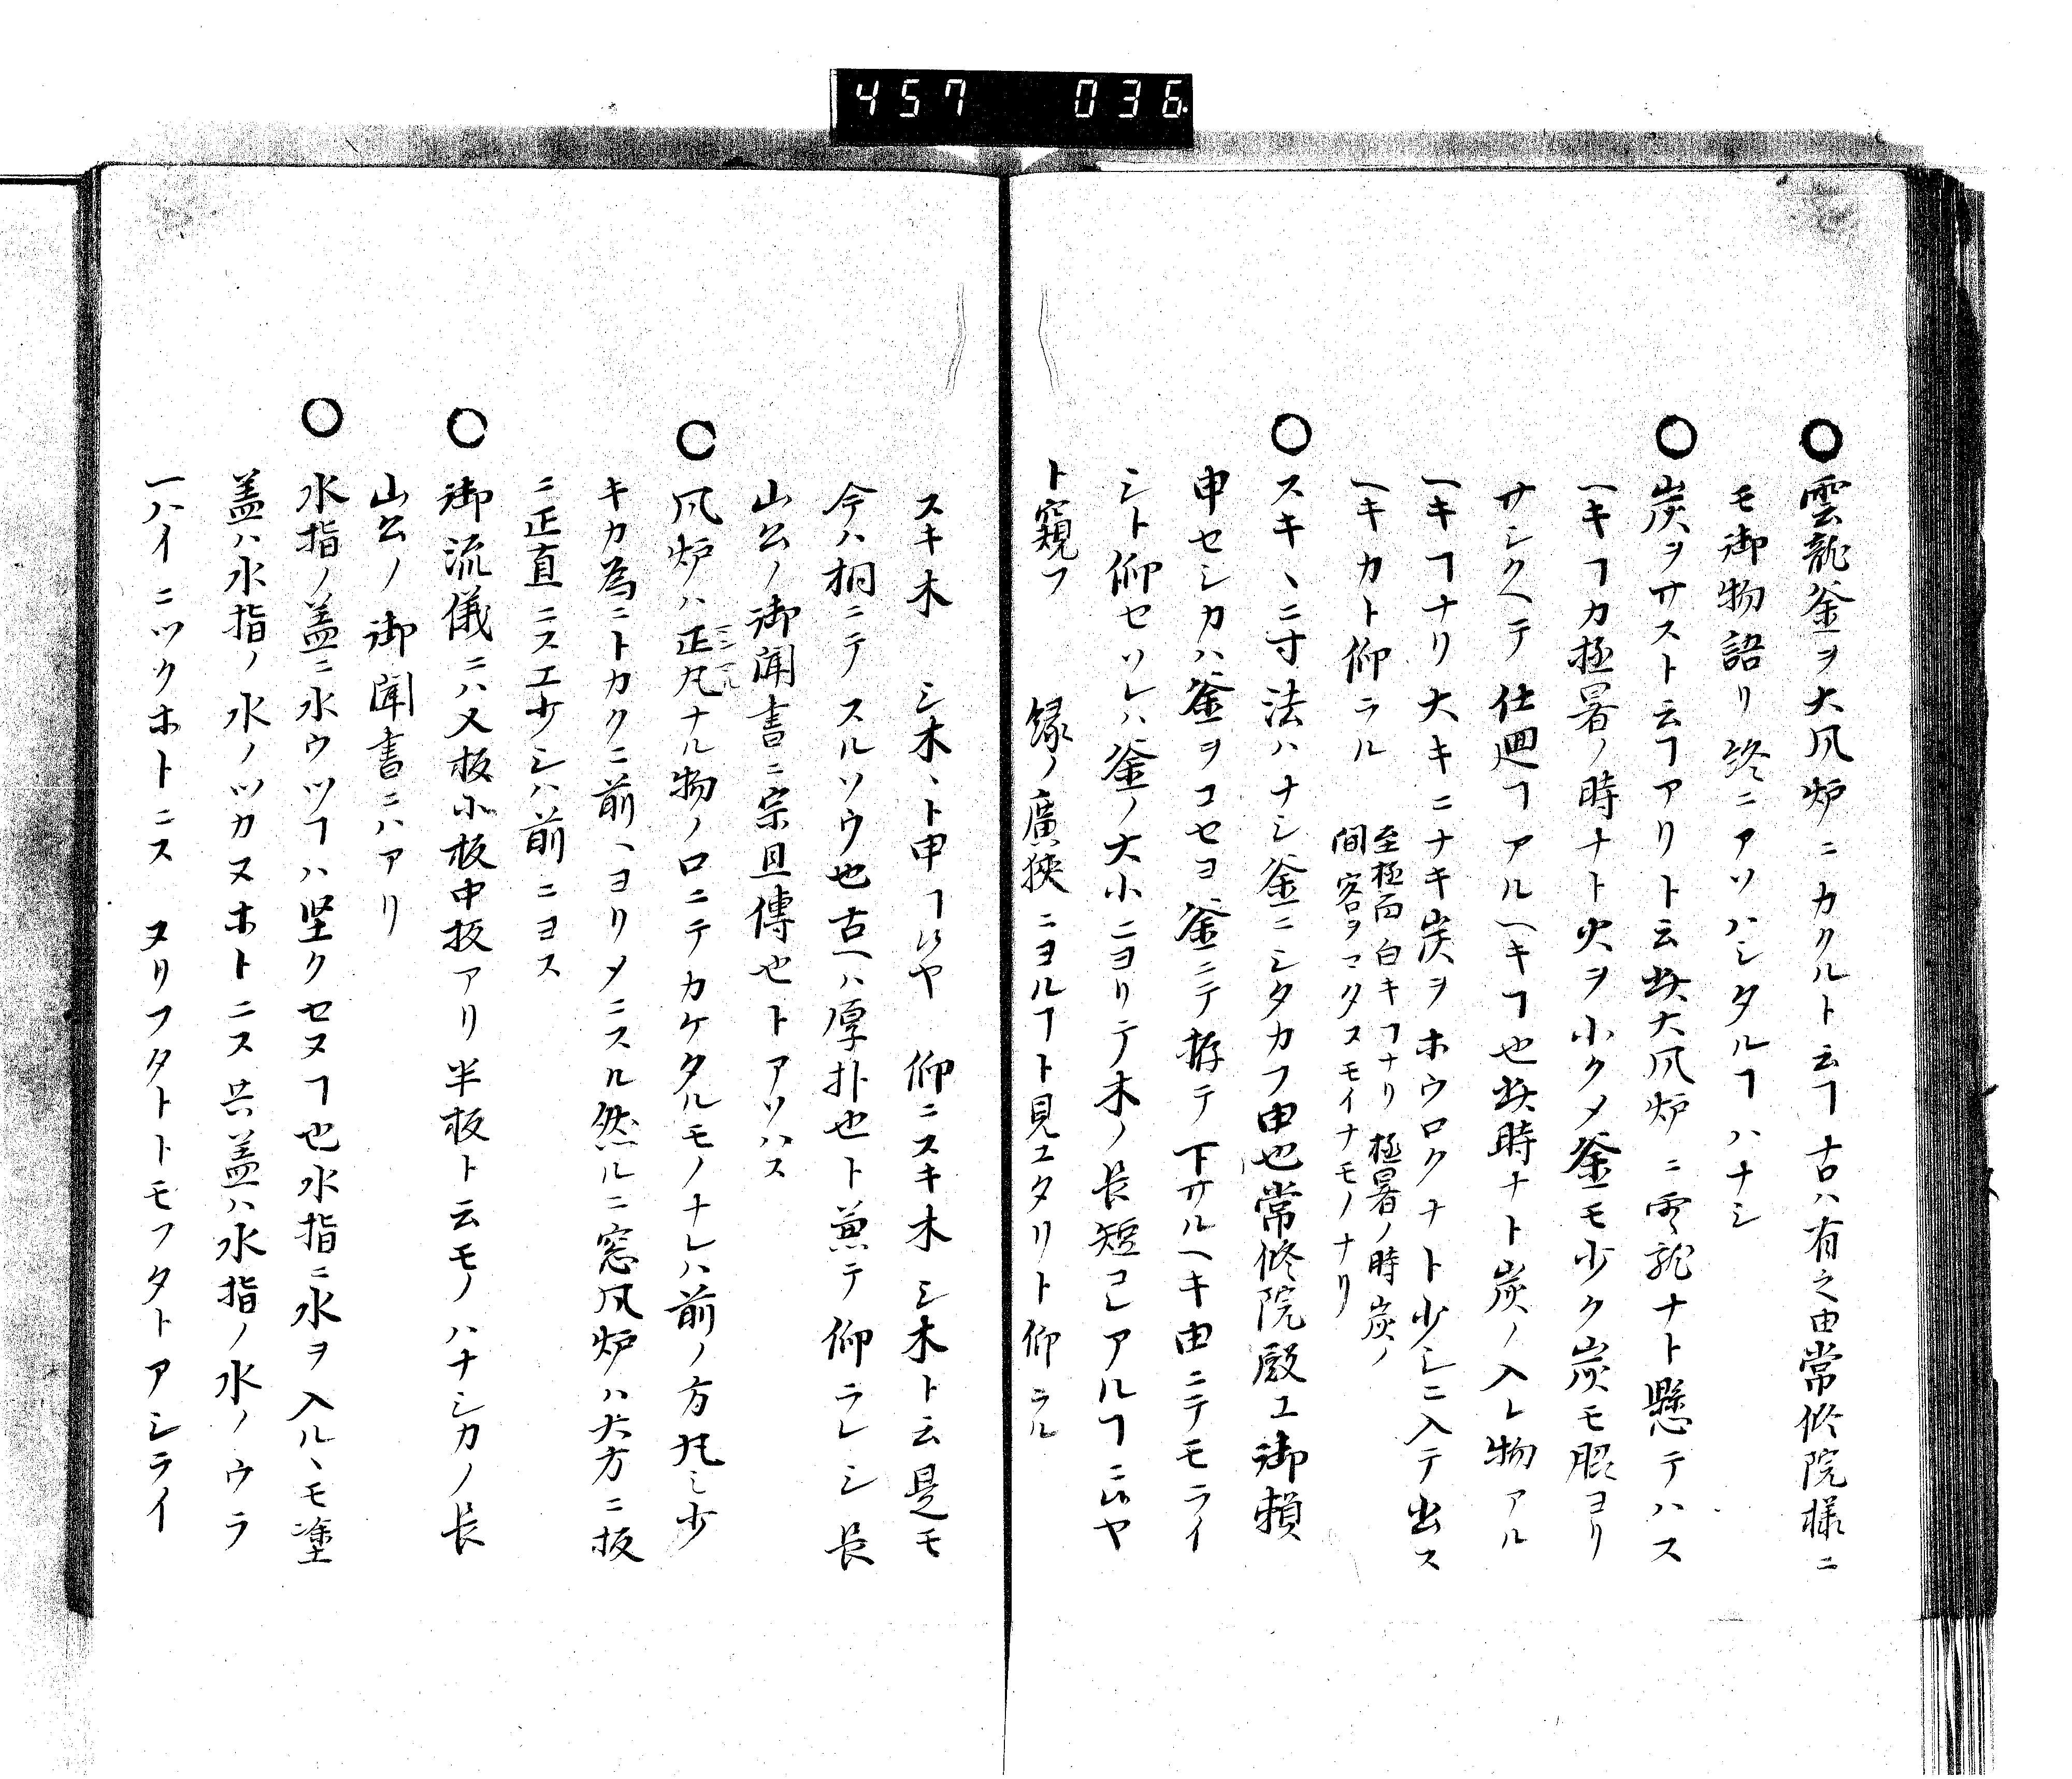 457 036
○雲龍釜ヲ大風炉ニカクルト云ヿ古ハ有之由常修院様ニ
モ御物語リ終ニアソハシタルヿハナシ
○炭ヲサスト云ヿアリト云共大風炉ニ雲龍ナト懸テハス
ヘキヿカ極暑ノ時ナト火ヲ小クメ釜モ少ク炭モ脇ヨリ
サシクヘテ仕廻ヿアルヘキヿ也共時ナト炭ノ入レ物アル
ヘキヿナリ大キニナキ炭ヲホウロクナト少シニ入テ出ス
ヘキカト仰ラル 至極面白キヿナリ極暑ノ時炭ノ
間客ヲマタスモイナモノナリ
○スキヽニ寸法ハナシ釜ニシタカフ由也常修院殿エ御頼
申セシカハ釜ヲコセヨ釜ニテ拵テ下サルヘキ由ニテモライ
シト仰セソレハ釜ノ大小ニヨリテ木ノ長短コレアルヿニ候ヤ
ト窺フ 縁ノ廣狹ニヨルヿト見エタリト仰ラル
スキ木 シ木ヽト申ヿ候ヤ 仰ニスキ木シ木ト云是モ
今ハ桐ニテスルソウ也古ヘハ厚朴也ト兼テ仰ラレシ長
山公ノ御聞書ニ宗旦傳也トアソハス
○風炉ハ正凡ナル物ノロニテカケタルモノナレハ前ノ方凡ミ少
キカ為ニトカクニ前ヽヨリメニスル然ルニ窓風炉ハ大方ニ板
ニ正直ニスエ少シハ前ニヨス
○御流儀ニハ大板小板中板アリ半板ト云モノハナシカノ長
山公ノ御聞書ニハアリ
○水指ノ蓋ニ水ウツヿハ堅クセヌヿ也水指ニ水ヲ入ルヽモ塗
蓋ハ水指ノ水ノツカヌホトニス共蓋ハ水指ノ水ノウラ
一ハイニツクホトニス ヌリフタトトモフタトアシライ